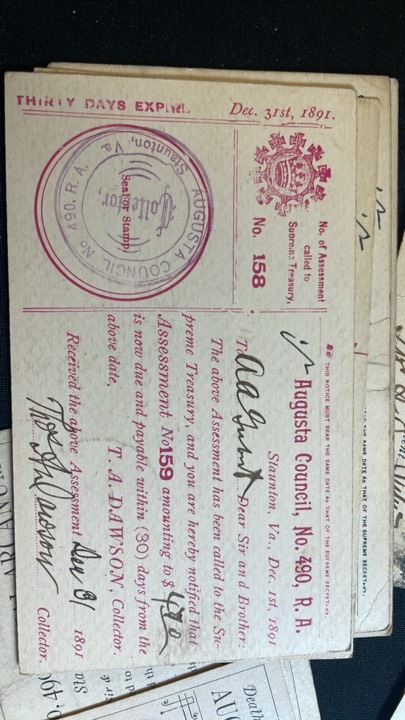 THIS NOTICE MUST BEAR THE SAME DATE AS THAT OF THE SUPREME SECRETARY.
No. of Assessment
called to
Supreme Treasury.
No. 158
Augusta Council, No. 490, R. A.
Staunton, Va., Dec. 1st, 1891
To Dear Sir and Brother:
The above Assessment has been called to the Su-
preme Treasury, and you are hereby notified that
Assessment No 159 amounting to $
is now due and payable within (30) days from the
above date.
T. A. DAWSON, Collector.
Received the above Assessment Dec 31 1891
Thos A Dawson Collector.
THIRTY DAYS EXPIRE
Dec. 31st, 1891.
AUGUSTA COUNCIL, No 490, R. A.
Staunton, Va
Collector,
Seal or Stamp.
THE SAME DATE AS THAT OF THE SUPREME SECRETARY.
Death
AU